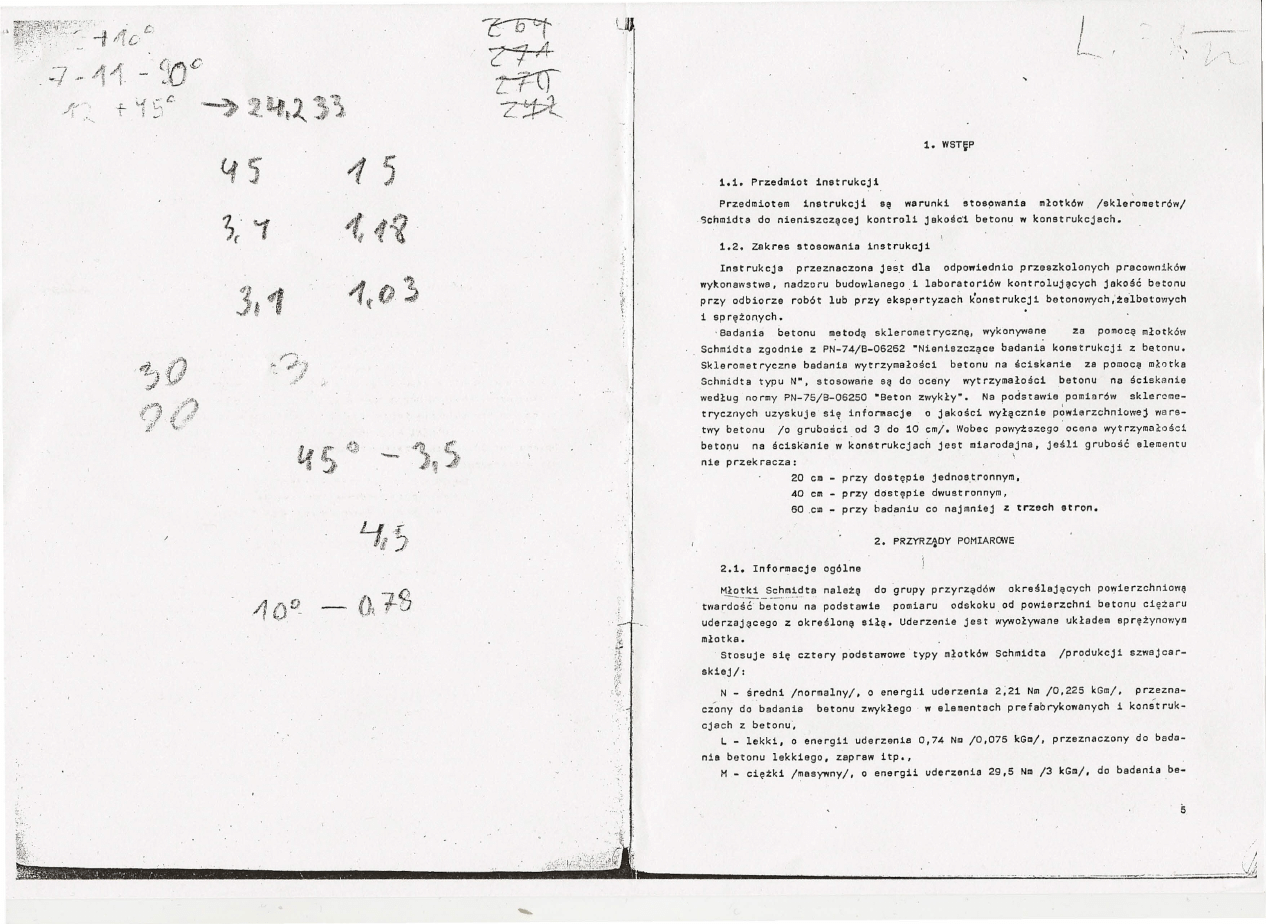 +10°
7-11-90°
12 +45° → 24,233
264
271
270
242
45 15
3,4 1,18
3,1 1,03
30 -3
90
45° - 3,5
4,5
10° - 0,78
L.
1. WSTĘP
1.1. Przedmiot instrukcji
Przedmiotem instrukcji są warunki stosowania młotków /sklerometrów/
Schmidta do nieniszczącej kontroli jakości betonu w konstrukcjach.
1.2. Zakres stosowania instrukcji
Instrukcja przeznaczona jest dla odpowiednio przeszkolonych pracowników
wykonawstwa, nadzoru budowlanego i laboratoriów kontrolujących jakość betonu
przy odbiorze robót lub przy ekspertyzach konstrukcji betonowych,żelbetowych
i sprężonych.
Badania betonu metodą sklerometryczną, wykonywane za pomocą młotków
Schmidta zgodnie z PN-74/B-06262 "Nieniszczące badania konstrukcji z betonu.
Sklerometryczne badania wytrzymałości betonu na ściskanie za pomocą młotka
Schmidta typu N", stosowane są do oceny wytrzymałości betonu na ściskanie
według normy PN-75/B-06250 "Beton zwykły". Na podstawie pomiarów sklerome-
trycznych uzyskuje się informacje o jakości wyłącznie powierzchniowej wars-
twy betonu /o grubości od 3 do 10 cm/. Wobec powyższego ocena wytrzymałości
betonu na ściskanie w konstrukcjach jest miarodajna, jeśli grubość elementu
nie przekracza:
20 cm - przy dostępie jednostronnym,
40 cm - przy dostępie dwustronnym,
60 cm - przy badaniu co najmniej z trzech stron.
2. PRZYRZĄDY POMIAROWE
2.1. Informacje ogólne
Młotki Schmidta należą do grupy przyrządów określających powierzchniową
twardość betonu na podstawie pomiaru odskoku od powierzchni betonu ciężaru
uderzającego z określoną siłą. Uderzenie jest wywoływane układem sprężynowym
młotka.
Stosuje się cztery podstawowe typy młotków Schmidta /produkcji szwajcar-
skiej/:
N - średni /normalny/, o energii uderzenia 2,21 Nm /0,225 kGm/, przezna-
czony do badania betonu zwykłego w elementach prefabrykowanych i konstruk-
cjach z betonu,
L - lekki, o energii uderzenia 0,74 Nm /0,075 kGm/, przeznaczony do bada-
nia betonu lekkiego, zapraw itp.,
M - ciężki /masywny/, o energii uderzenia 29,5 Nm /3 kGm/, do badania be-
5